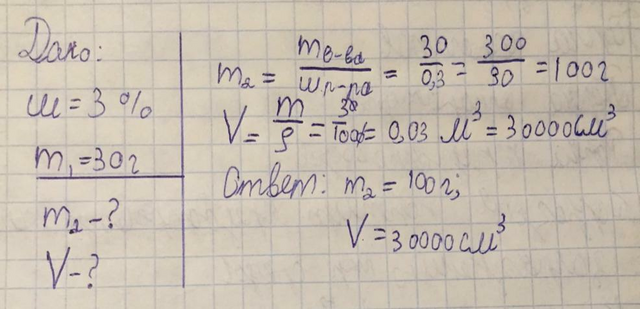 Дано:
ω = 3 %
m₁ = 30г
m₂ - ?
V - ?
m₂ = m в-ва / ω р-ра = 30 / 0,3 = 300 / 30 = 100г
V = m / ρ = 30 / 1000 = 0,03 м³ = 30000см³
Ответ: m₂ = 100г;
V = 30000см³